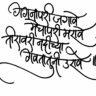 गगनापरी जगावे
मेघापरी मरावे
तीरावरी नदीच्या
गवतातुनी उरावे